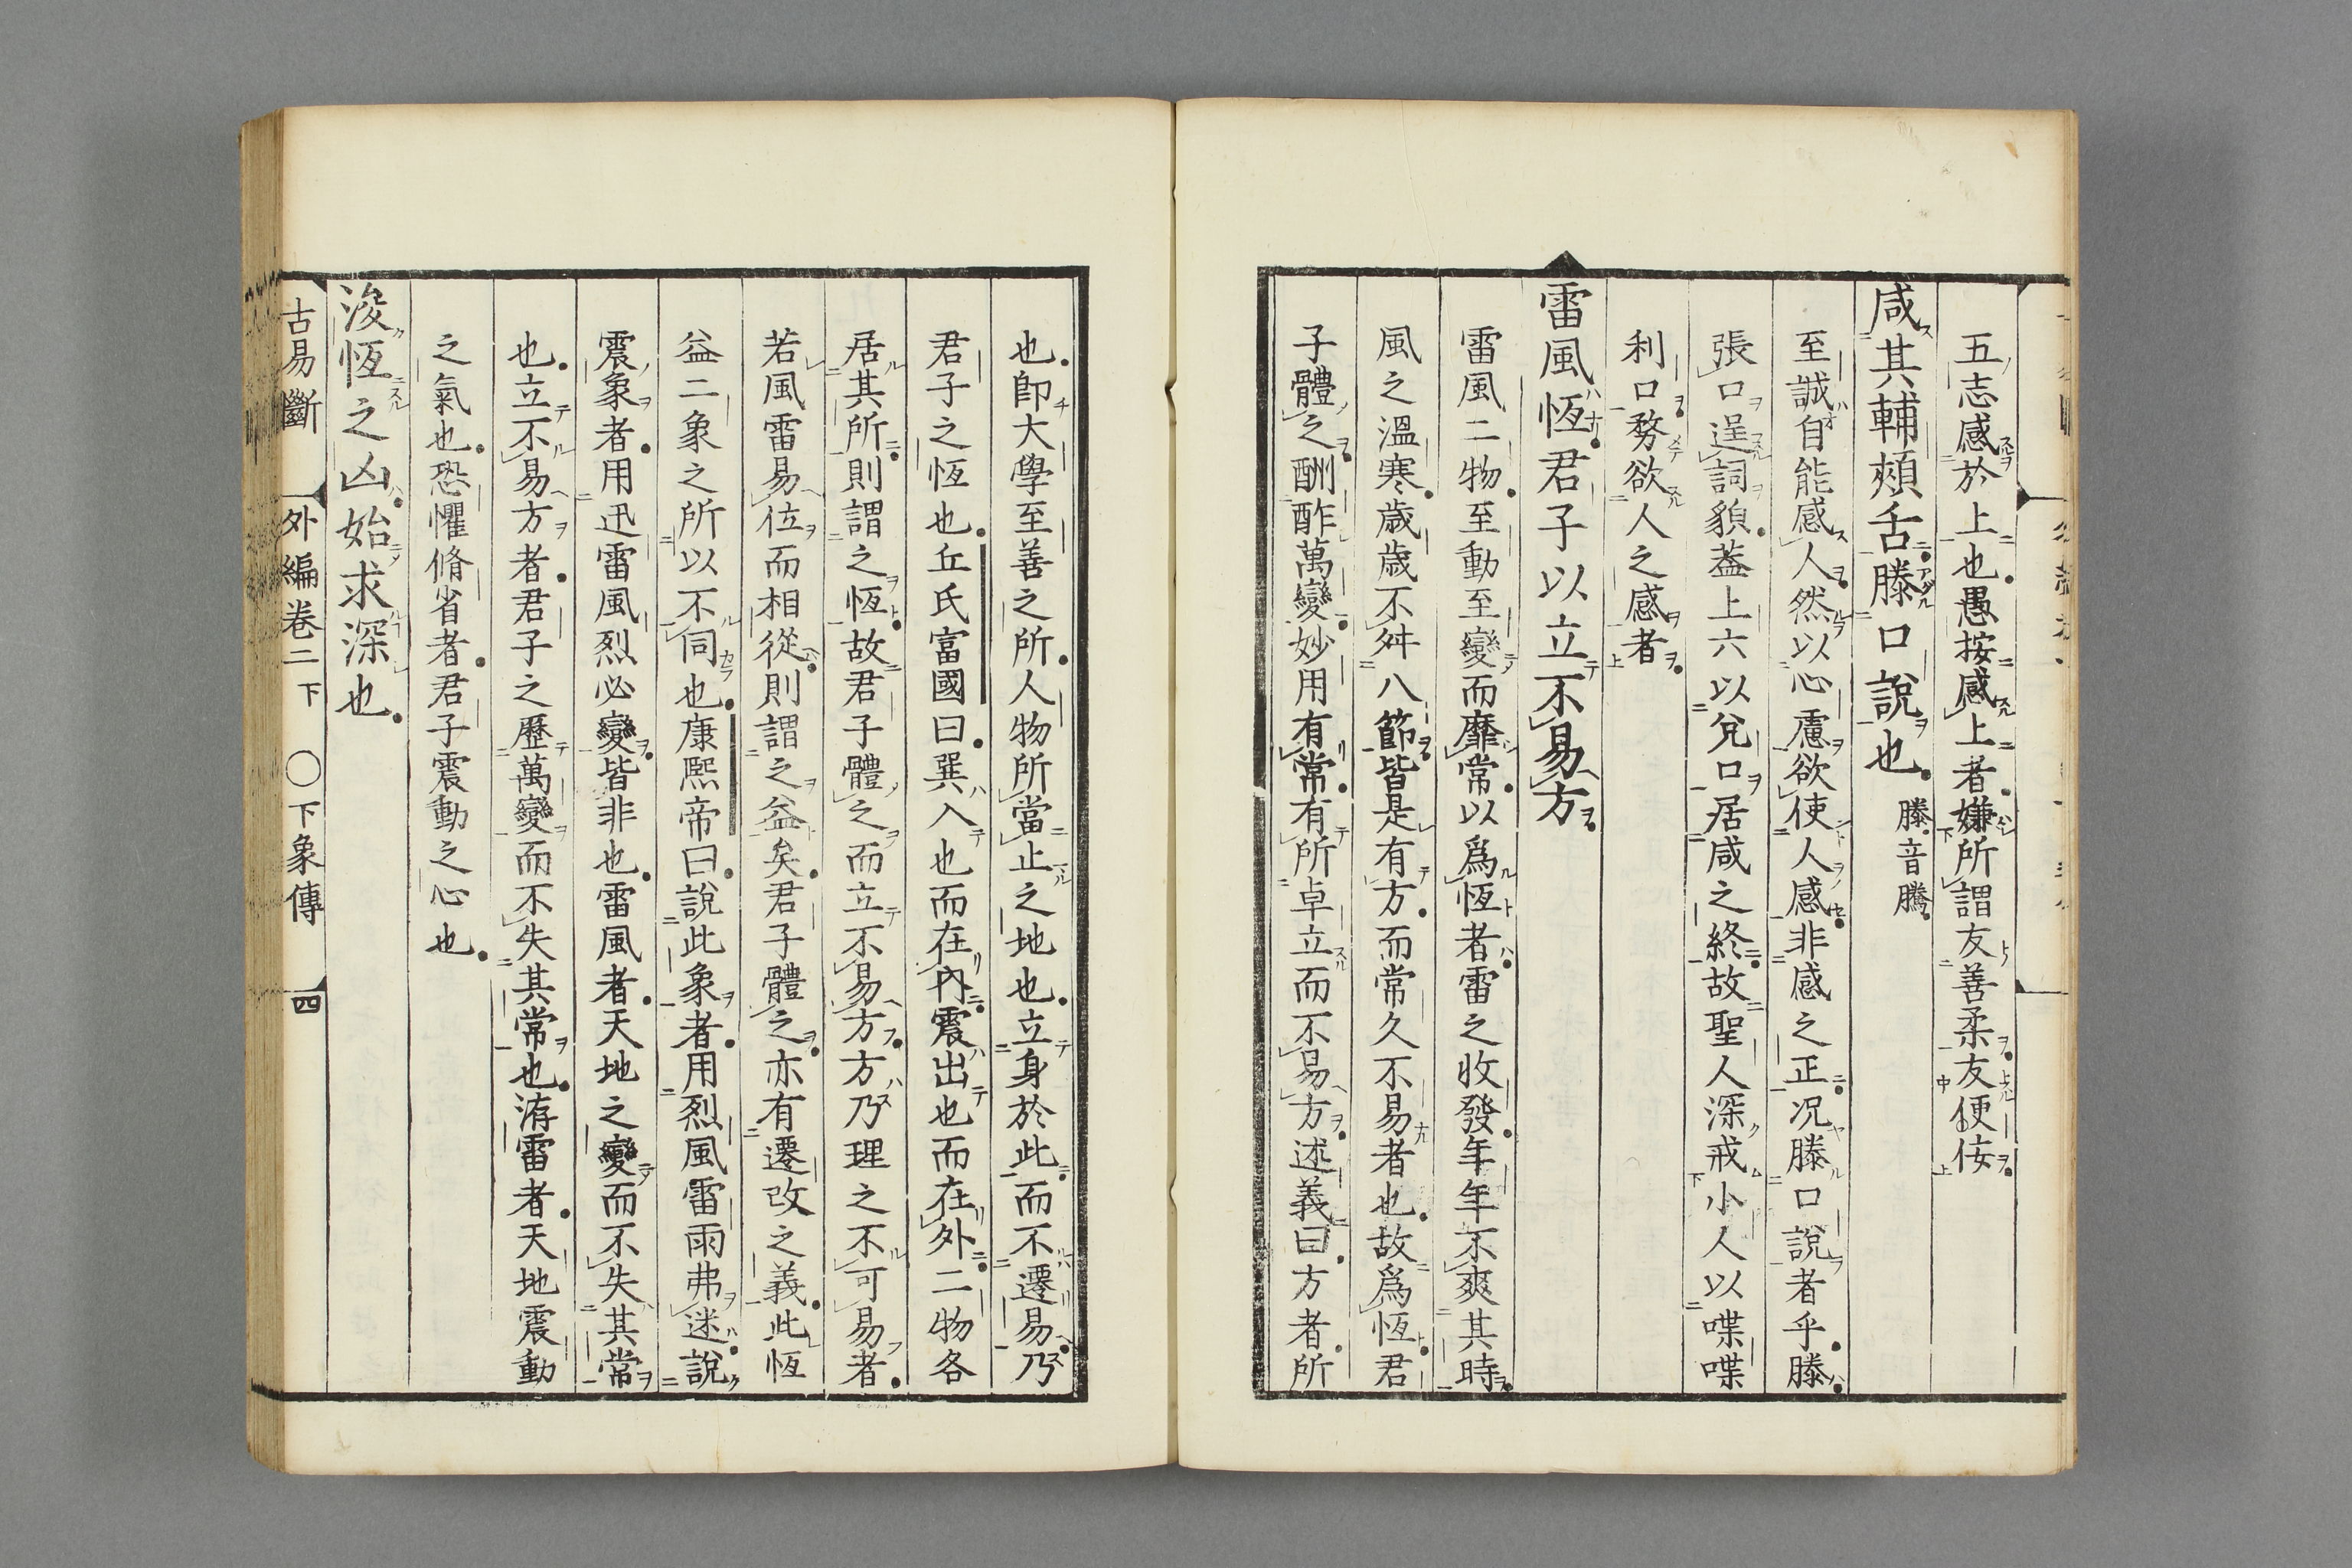 五志感於上也愚按感上者嫌所謂友善柔友便佞
咸其輔頰舌滕口說也滕音騰
至誠自能感人然以心慮欲使人感非感之正况滕口說者乎滕
張口逞詞貌葢上六以兌口居咸之終故聖人深戒小人以喋喋
利口務欲人之感者
雷風恆君子以立不易方
雷風二物至動至變而靡常以爲恆者雷之收發年年不爽其時
風之溫寒歲歲不舛八節皆是有方而常久不易者也故爲恆君
子體之酬酢萬變妙用有常有所卓立而不易方述義曰方者所
也卽大學至善之所人物所當止之地也立身於此而不遷易乃
君子之恆也丘氏富國曰巽入也而在內震出也而在外二物各
居其所則謂之恆故君子體之而立不易方方乃理之不可易者
若風雷易位而相從則謂之益矣君子體之亦有遷改之義此恆
益二象之所以不同也康熙帝曰說此象者用烈風雷雨弗迷說
震象者用迅雷風烈必變皆非也雷風者天地之變而不失其常
也立不易方者君子之歷萬變而不失其常也洊雷者天地震動
之氣也恐懼脩省者君子震動之心也
浚恆之凶始求深也
古易斷 外編卷二下 〇下象傳 四